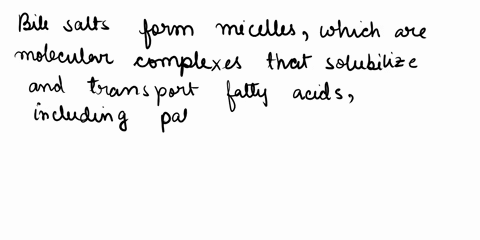 Bile salts form micelles, which are
molecular complexes that solubilize
and transport fatty acids,
including pal